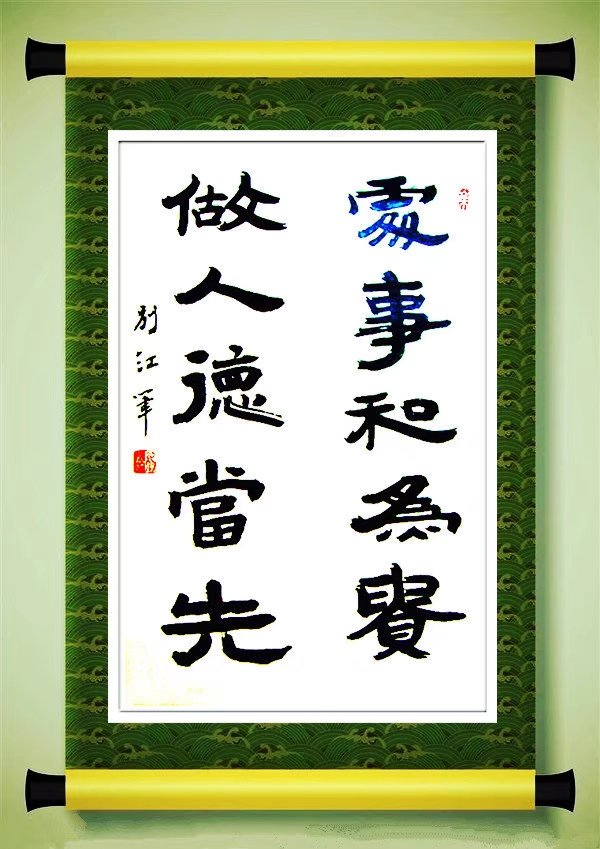 處事和為貴
做人德當先
别江筆